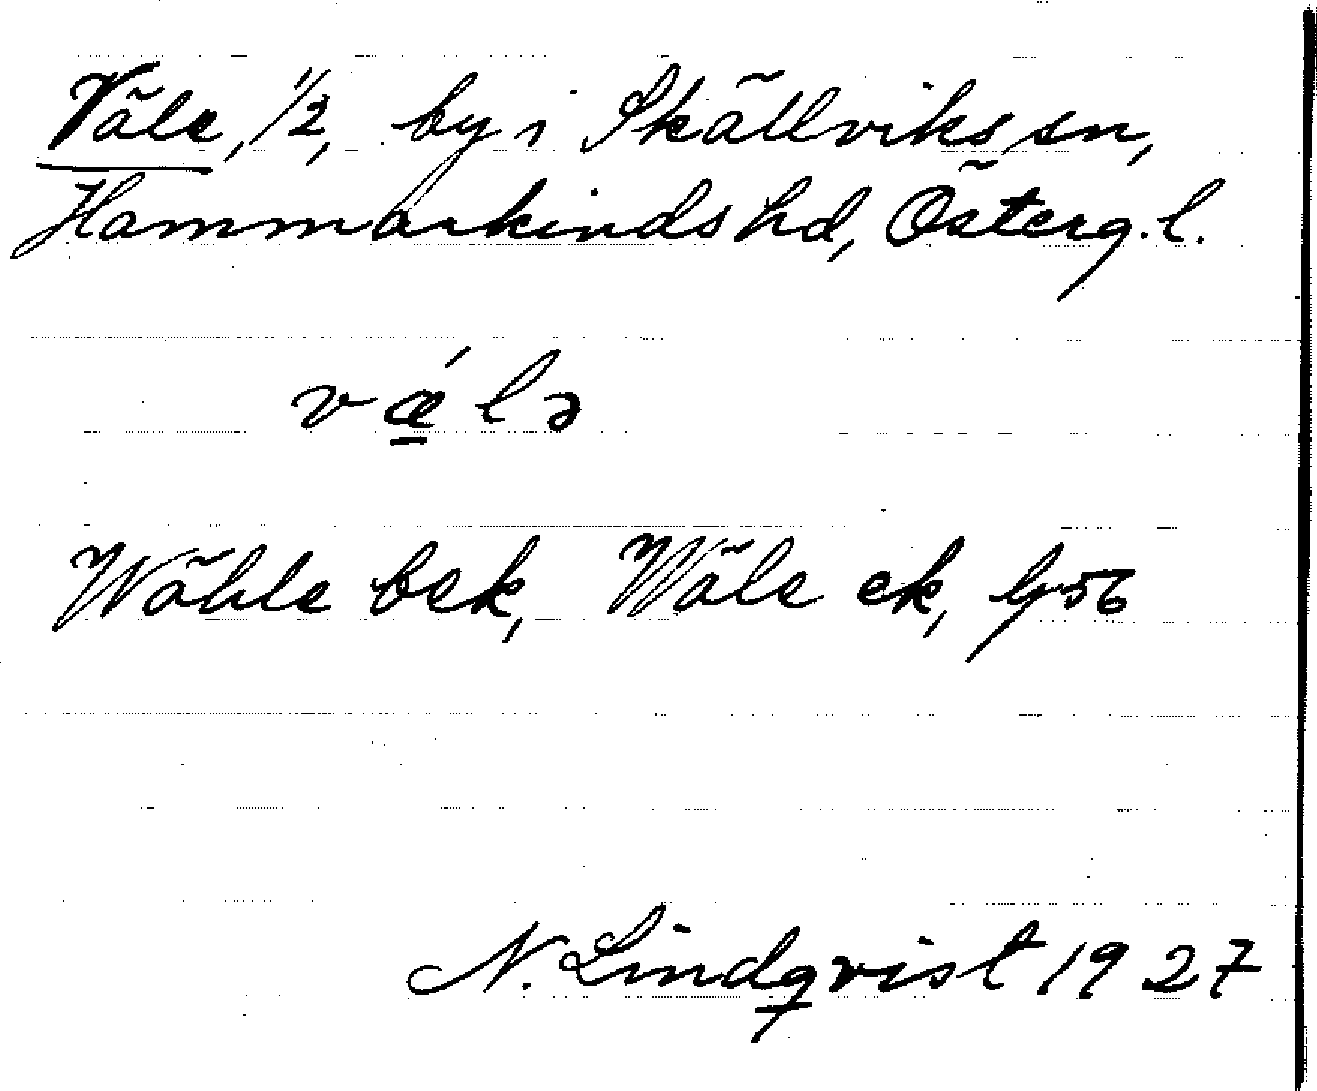 Väle, 1/2, by i Skällviks sn,
Hammarkinds hd, Österg. l.
vǽlə
Wähle bek, Wäle ek, bl 56
N. Lindqvist 1927